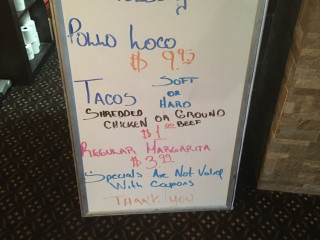 Pollo Loco
$ 9.95
Tacos Soft
or
Hard
Shredded
Chicken or Ground
Beef
$1.00
Regular Margarita
$3.99
Specials Are Not Valid
With Coupons
Thank You